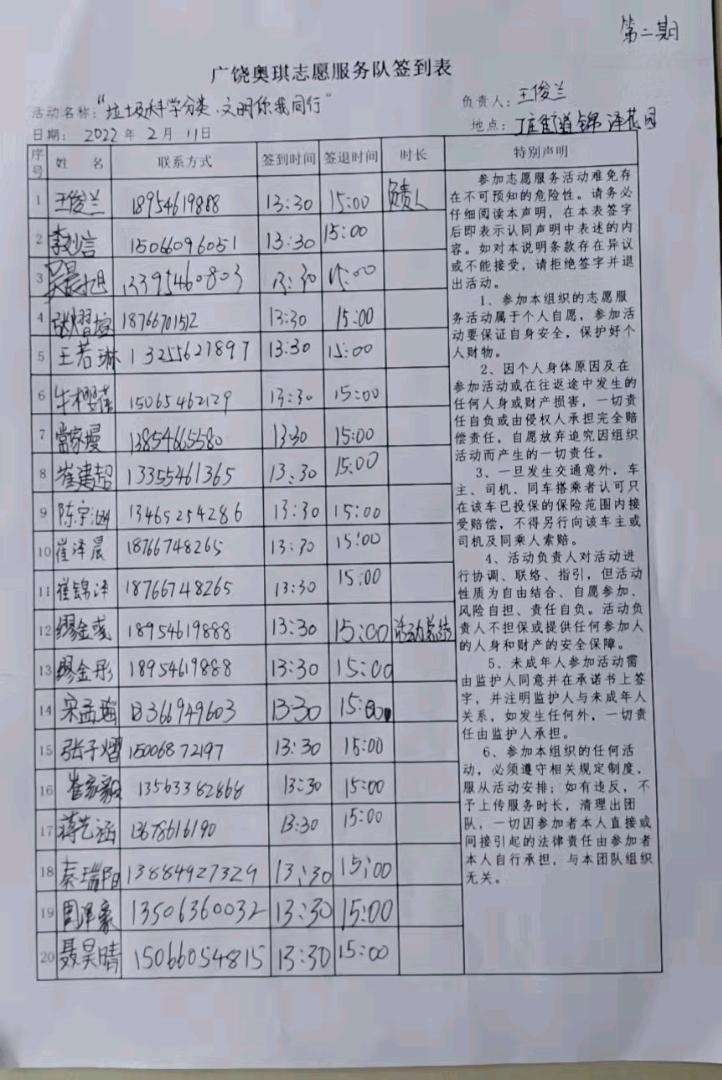 第二期
广饶奥琪志愿服务队签到表
活动名称:“垃圾科学分类、文明你我同行” 负责人:王俊兰
日期: 2022 年 2 月 11日 地点:丁庄街道锦泽花园
序号 姓 名 联系方式 签到时间 签退时间 时长 特别声明
1 王俊兰 18954619888 13:30 15:00 负责人
2 15066096051 13:30 15:00
3 13395460803 13:30 15:00
4 18766701512 13:30 15:00
5 王若琳 13255621897 13:30 15:00
6 15065462129 13:30 15:00
7 常家嫚 13854665580 13:30 15:00
8 崔建超 13355461365 13:30 15:00
9 陈宇涵 13465254286 13:30 15:00
10 崔泽晨 18766748265 13:30 15:00
11 崔锦泽 18766748265 13:30 15:00
12 缪金彧 18954619888 13:30 15:00 活动总结
13 缪金彤 18954619888 13:30 15:00
14 宋孟瑶 18366949603 13:30 15:00
15 张子熠 15006872197 13:30 15:00
16 崔家毅 13563382868 13:30 15:00
17 蒋艺涵 13678616190 13:30 15:00
18 秦瑞阳 13884927329 13:30 15:00
19 周泽豪 13506360032 13:30 15:00
20 聂昊晴 15066054815 13:30 15:00
参加志愿服务活动难免存
在不可预知的危险性。请务必
仔细阅读本声明，在本表签字
后即表示认同声明中表述的内
容。如对本说明条款存在异议
或不能接受，请拒绝签字并退
出活动。
1、参加本组织的志愿服
务活动属于个人自愿，参加活
动要保证自身安全，保护好个
人财物。
2、因个人身体原因及在
参加活动或在往返途中发生的
任何人身或财产损害，一切责
任自负或由侵权人承担完全赔
偿责任，自愿放弃追究因组织
活动而产生的一切责任。
3、一旦发生交通意外，车
主、司机、同车搭乘者认可只
在该车已投保的保险范围内接
受赔偿，不得另行向该车主或
司机及同乘人索赔。
4、活动负责人对活动进
行协调、联络、指引，但活动
性质为自由结合、自愿参加、
风险自担、责任自负。活动负
责人不担保或提供任何参加人
的人身和财产的安全保障。
5、未成年人参加活动需
由监护人同意并在承诺书上签
字，并注明监护人与未成年人
关系，如发生任何外，一切责
任由监护人承担。
6、参加本组织的任何活
动，必须遵守相关规定制度，
服从活动安排；如有违反，不
予上传服务时长，清理出团
队，一切因参加者本人直接或
间接引起的法律责任由参加者
本人自行承担，与本团队组织
无关。